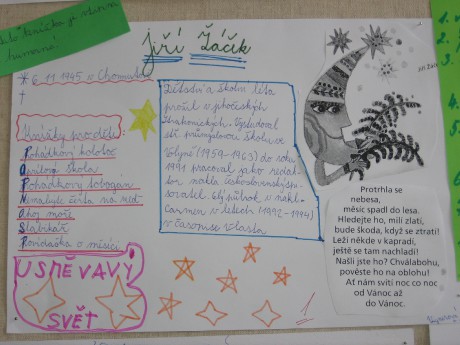 Jiří Žáček
* 6. 11. 1945 v Chomutově
†
Knížky pro děti:
Pohádkový kolotoč
Aprílová škola
Pohádkový tobogan
Nemalujte čerta na zeď
Ahoj moře
Slabikář
Povídačka o měsíci
USMĚVAVÝ
SVĚT
Dětství a školní léta
prožil v jihočeských
Strakonicích. Vystudoval
stř. průmyslovou školu ve
Volyni (1959-1963) do roku
1991 pracoval jako redak-
tor nakl. československý spi-
sovatel. Byl půlrok v nakl.
Carmen v letech (1992-1994)
v časopise vlasta
Jiří Žáč
Protrhla se
nebesa,
měsíc spadl do lesa.
Hledejte ho, milí zlatí,
bude škoda, když se ztratí!
Leží někde v kapradí,
ještě se tam nachladí!
Našli jste ho? Chválabohu,
pověste ho na oblohu!
Ať nám svítí noc co noc
od Vánoc až
do Vánoc.
1